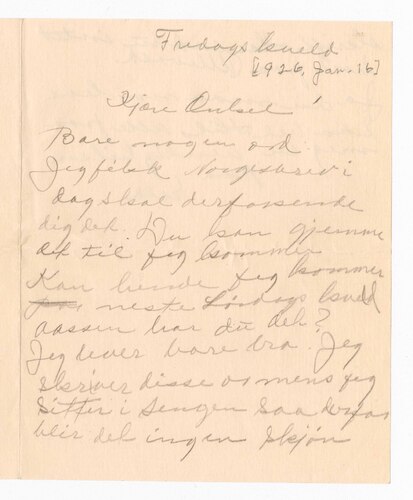 Fredags kveld
[1926, Jan. 16]
Kjære Onkel!
Bare nogen ord
Jeg fék Norgesbrev i
dag skal derfor sende
dig det. Du kan gjemme
det til jeg kommer
Kan hende jeg kommer
neste Lørdags kveld
aassen har du det?
Jeg lever bare bra. Jeg
skriver disse or mens jeg
sitter i sengen saa
blir det ingen skjøn